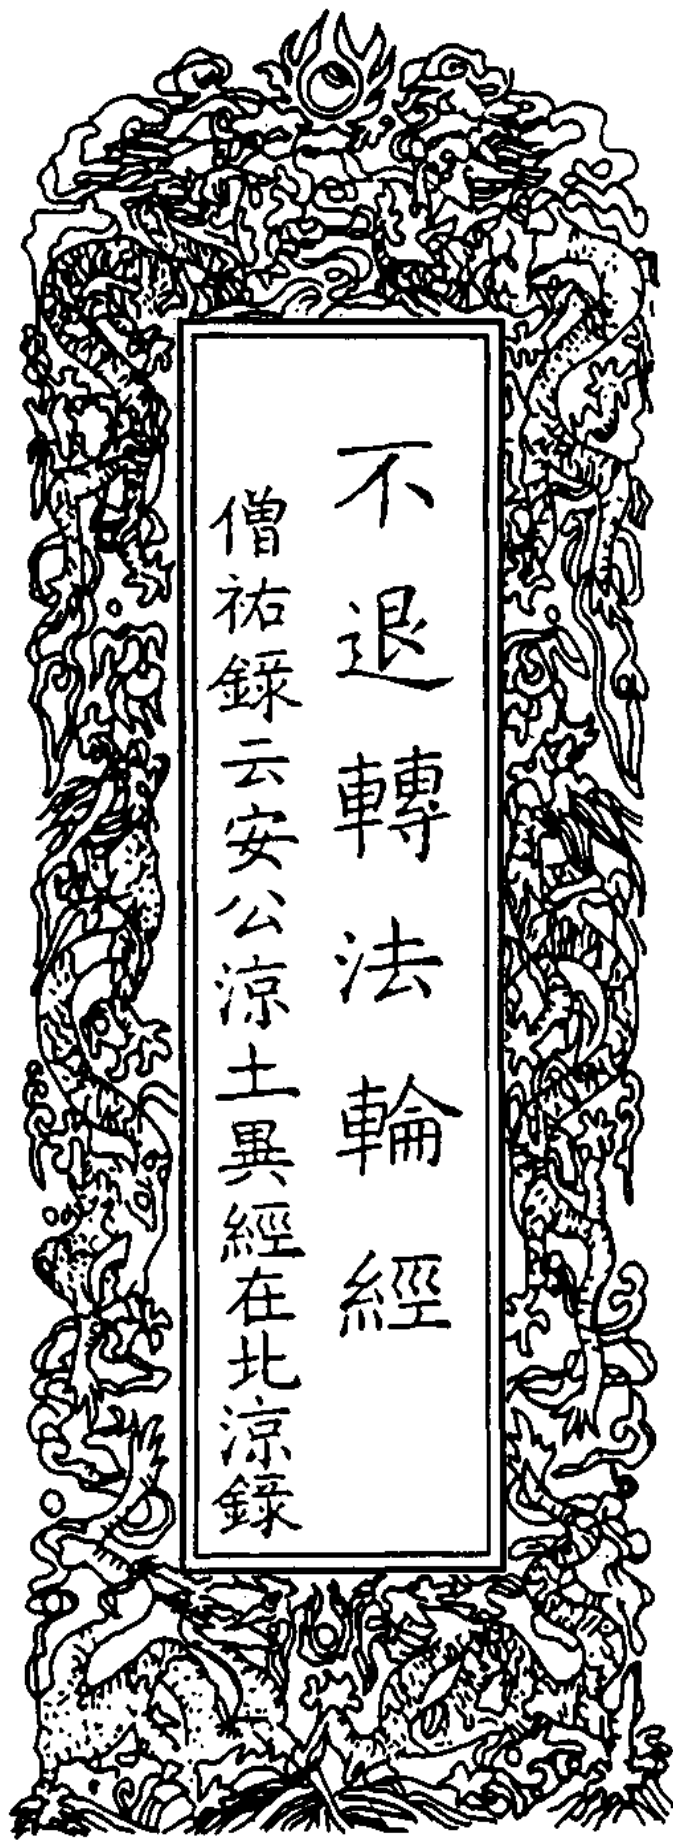 不退轉法輪經
僧祐錄云安公涼土異經在北涼錄